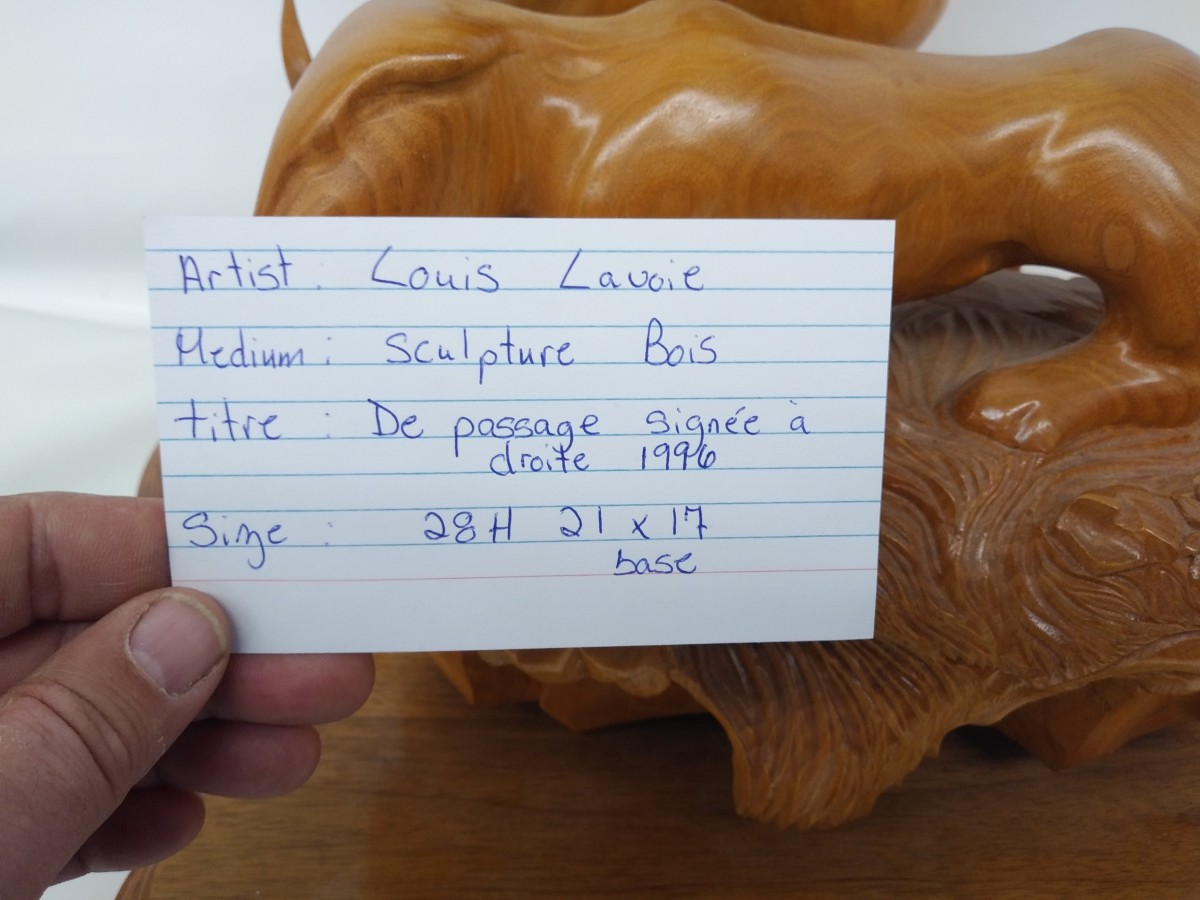 Artist : Louis Lavoie
Medium : Sculpture Bois
titre : De passage signée à
droite 1996
Size : 28H 21 x 17
base